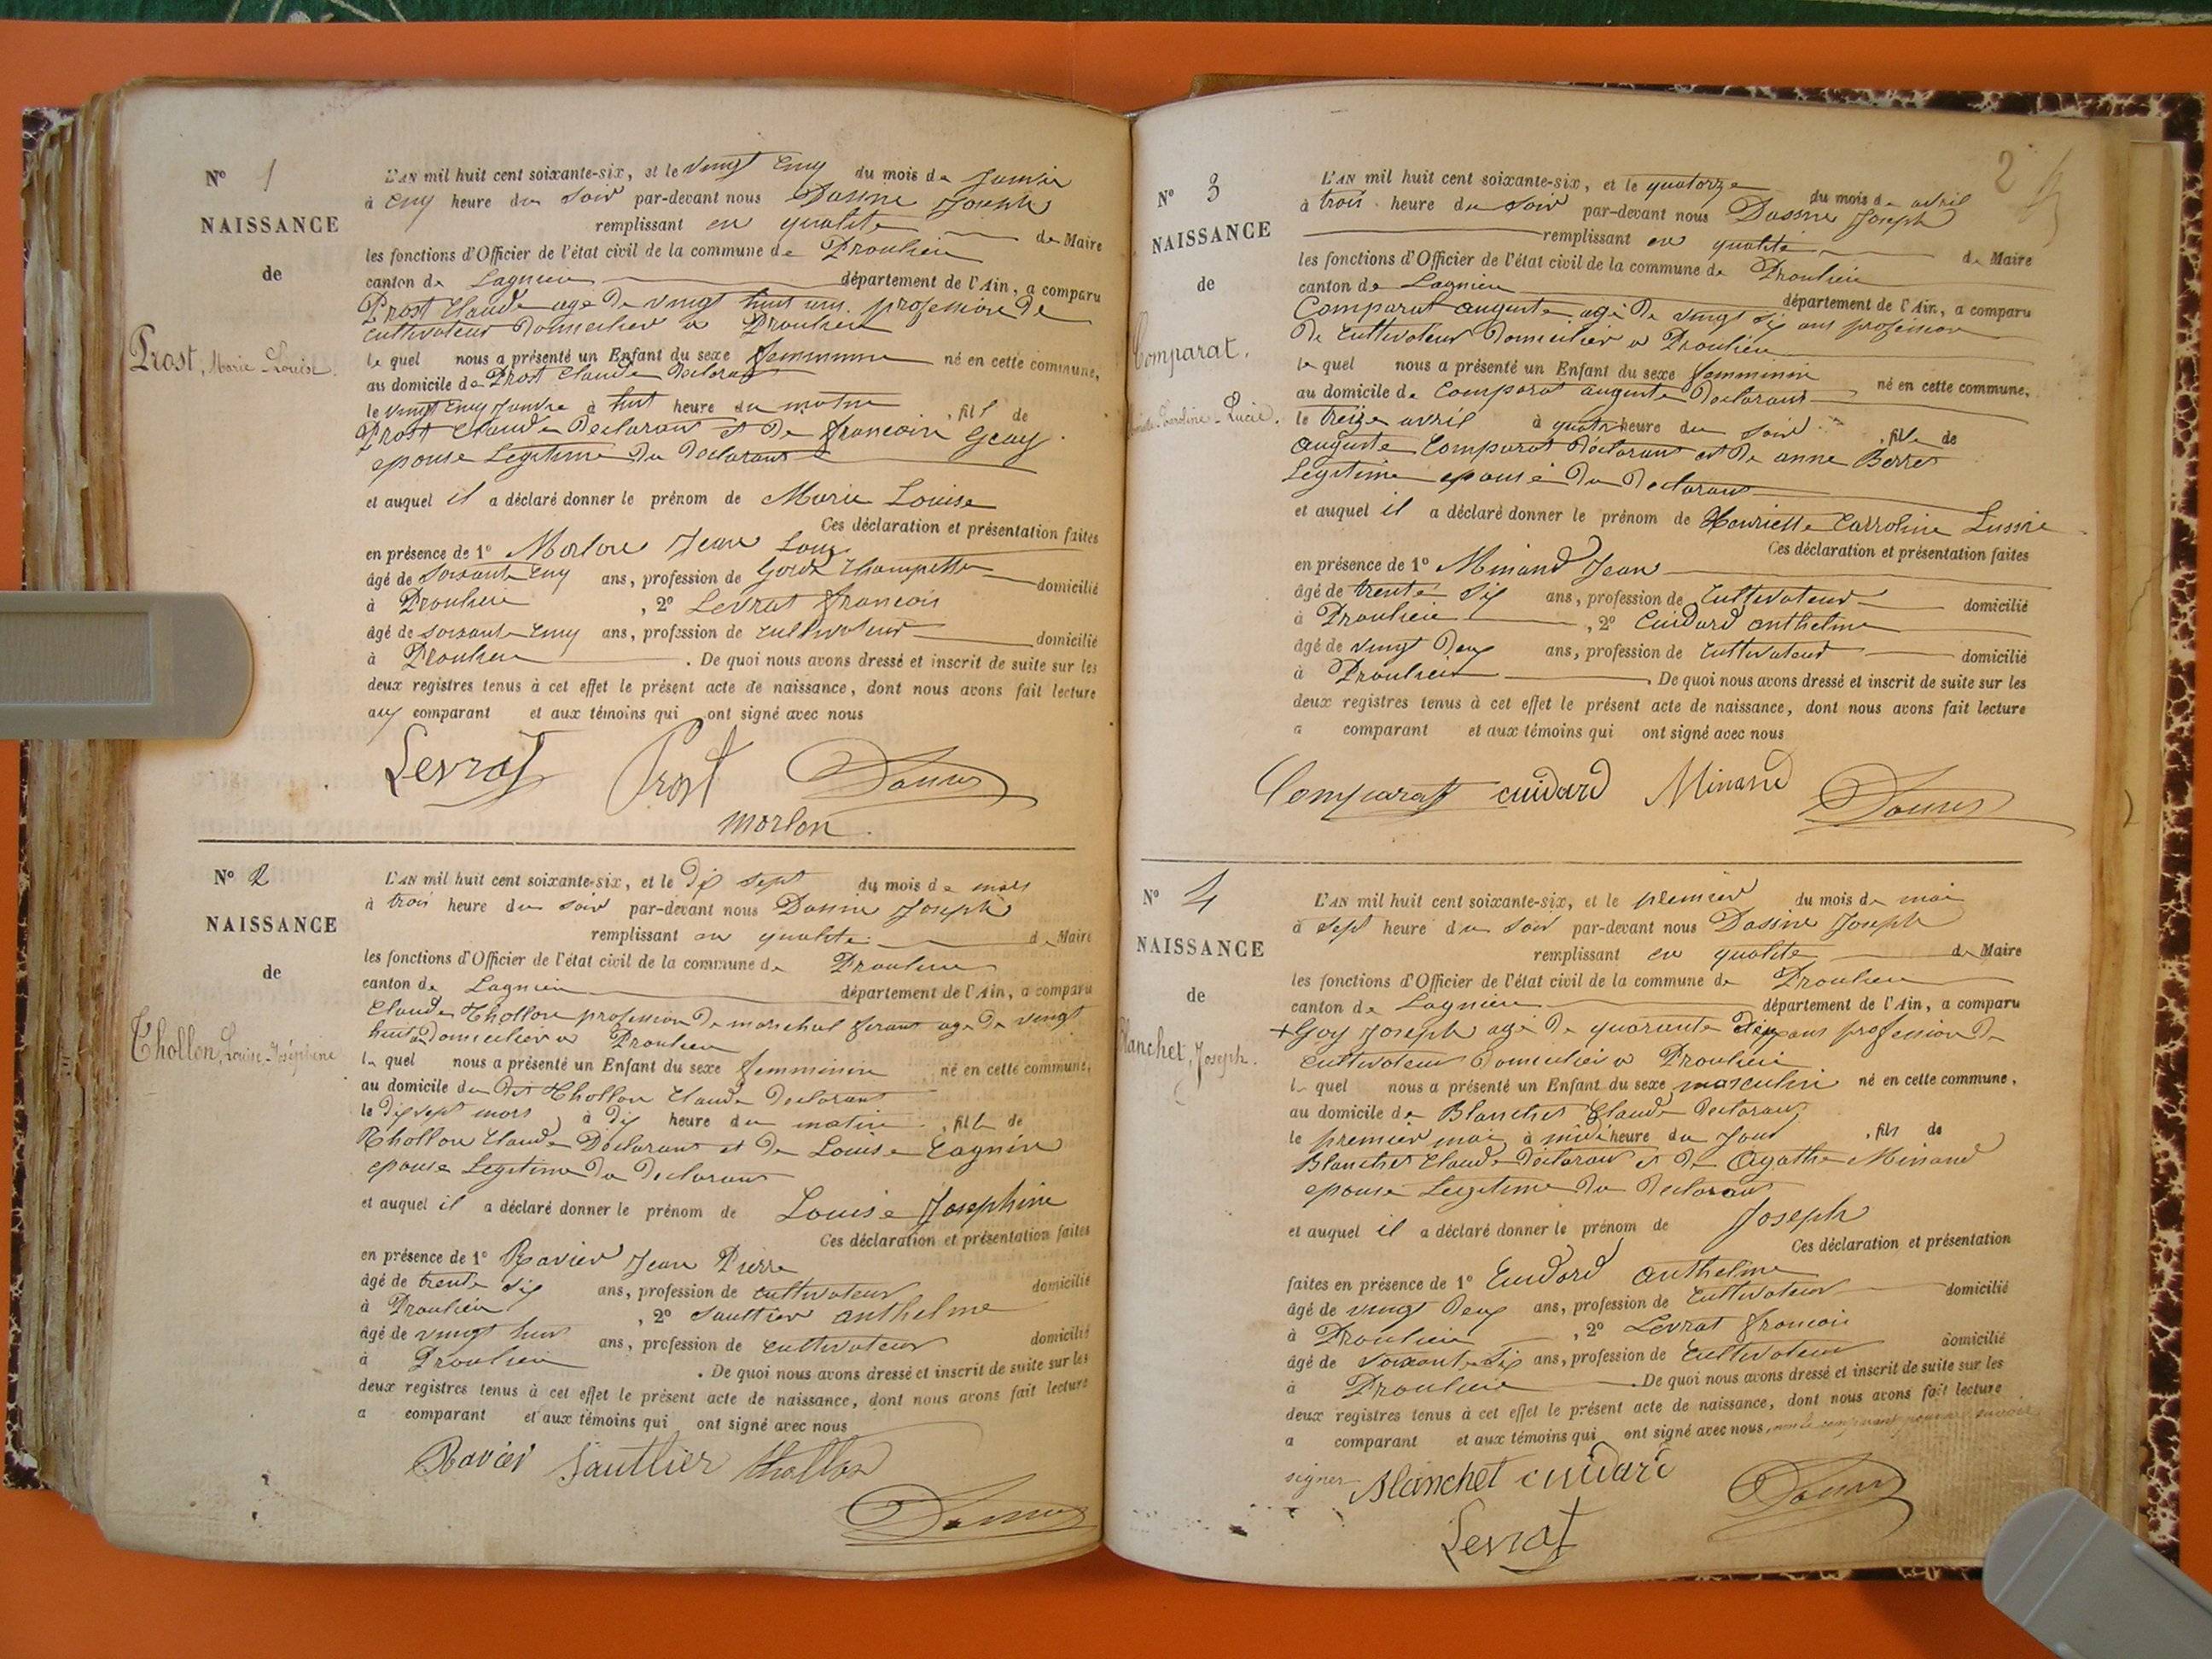 N° 1
NAISSANCE
de
Prost, Marie-Louise.
L'AN mil huit cent soixante-six, et le vingt cinq du mois de Janvier
à cinq heure du soir par-devant nous Dassine Joseph
remplissant en qualité de Maire
les fonctions d'Officier de l'état civil de la commune de Proulieu
canton de Lagnieu département de l'Ain, a comparu
Prost Claude age de vingt huit ans profession de
cultivateur domicilier a Proulieu
le quel nous a présenté un Enfant du sexe femminin né en cette commune,
au domicile de Prost Claude declarant
le vingt cinq Janvier à huit heure du matin , fill de
Prost Claude Declarant et de francoise
epouse Legitime du Declarant
et auquel il a déclaré donner le prénom de Marie Louise
Ces déclaration et présentation faites
en présence de 1° Morlon Jean Louis
âgé de soixante cinq ans, profession de Garde Champette domicilié
à Proulieu , 2° Levrat francois
âgé de soixante cinq ans, profession de cultivateur domicilié
à Proulieu . De quoi nous avons dressé et inscrit de suite sur les
deux registres tenus à cet effet le présent acte de naissance, dont nous avons fait lecture
aux comparant et aux témoins qui ont signé avec nous
Levrat Prost
morlon
N° 2
NAISSANCE
de
Thollon, Louise-Joséphine
L'AN mil huit cent soixante-six, et le dix sept du mois de mars
à trois heure du soir par-devant nous Dassine Joseph
remplissant en qualité de Maire
les fonctions d'Officier de l'état civil de la commune de Proulieu
canton de Lagnieu département de l'Ain, a comparu
Claude Thollon profession de marichal ferant age de vingt
huit domicilier a Proulieu
le quel nous a présenté un Enfant du sexe femminin né en cette commune,
au domicile du dit Thollon Claude declarant
le dix sept mars à dix heure du matin , fille de
Thollon Claude Declarant et de Louise Cagnin
epouse Legitime du declarant
et auquel il a déclaré donner le prénom de Louise Josephine
Ces déclaration et présentation faites
en présence de 1° Ravier Jean Pierre
âgé de trente six ans, profession de cultivateur domicilié
à Proulieu , 2° Sauttier anthelme
âgé de vingt huit ans, profession de cultivateur domicilié
à Proulieu . De quoi nous avons dressé et inscrit de suite sur les
deux registres tenus à cet effet le présent acte de naissance, dont nous avons fait lecture
a comparant et aux témoins qui ont signé avec nous
Ravier Sauttier Thollon
2
N° 3
NAISSANCE
de
Comparat,
Caroline-Lucie.
L'AN mil huit cent soixante-six, et le quatorze du mois de avril
à trois heure du soir par-devant nous Dassine Joseph
remplissant en qualité de Maire
les fonctions d'Officier de l'état civil de la commune de Proulieu
canton de Lagnieu département de l'Ain, a comparu
Comparat auguste agé de vingt six ans profession
de cultivateur domicilier a Proulieu
le quel nous a présenté un Enfant du sexe femminin né en cette commune,
au domicile de Comparat auguste declarant
le treize avril à quatre heure du soir , fille de
auguste Comparat declarant et de anne Berret
Legitime epouse du declarant
et auquel il a déclaré donner le prénom de Henriette Carroline Lussie
Ces déclaration et présentation faites
en présence de 1° Minand Jean
âgé de trente six ans, profession de cultivateur domicilié
à Proulieu , 2° Cuidard anthelme
âgé de vingt deux ans, profession de cultivateur domicilié
à Proulieu . De quoi nous avons dressé et inscrit de suite sur les
deux registres tenus à cet effet le présent acte de naissance, dont nous avons fait lecture
a comparant et aux témoins qui ont signé avec nous
Comparat cuidard Minand
N° 4
NAISSANCE
de
Blanchet, Joseph.
L'AN mil huit cent soixante-six, et le premier du mois de mai
à sept heure du soir par-devant nous Dassine Joseph
remplissant en qualité de Maire
les fonctions d'Officier de l'état civil de la commune de Proulieu
canton de Lagnieu département de l'Ain, a comparu
+ Goy Joseph agé de quarante deux ans profession de
cultivateur domicilier a Proulieu
le quel nous a présenté un Enfant du sexe masculin né en cette commune,
au domicile de Blanchet Claude declarant
le premier mai à midi heure du Jour , fils de
Blanchet Claude declarant et de Agathe Minand
epouse Legitime du declarant
et auquel il a déclaré donner le prénom de Joseph
Ces déclaration et présentation
faites en présence de 1° Cuidard anthelme
âgé de vingt deux ans, profession de cultivateur domicilié
à Proulieu , 2° Levrat francois
âgé de soixante six ans, profession de cultivateur domicilié
à Proulieu . De quoi nous avons dressé et inscrit de suite sur les
deux registres tenus à cet effet le présent acte de naissance, dont nous avons fait lecture
a comparant et aux témoins qui ont signé avec nous, non le comparant pour ne savoir
signer Blanchet cuidard
Levrat